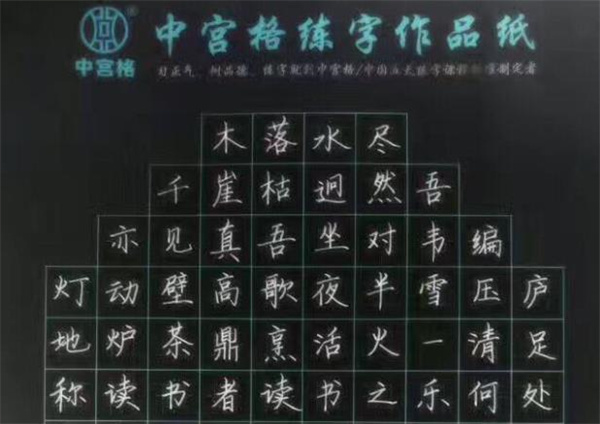 中宫格练字作品纸
中宫格
木落水尽
千崖枯迥然吾
亦见真吾坐对韦编
灯动壁高歌夜半雪压庐
地炉茶鼎烹活火一清足
称读书者读书之乐何处